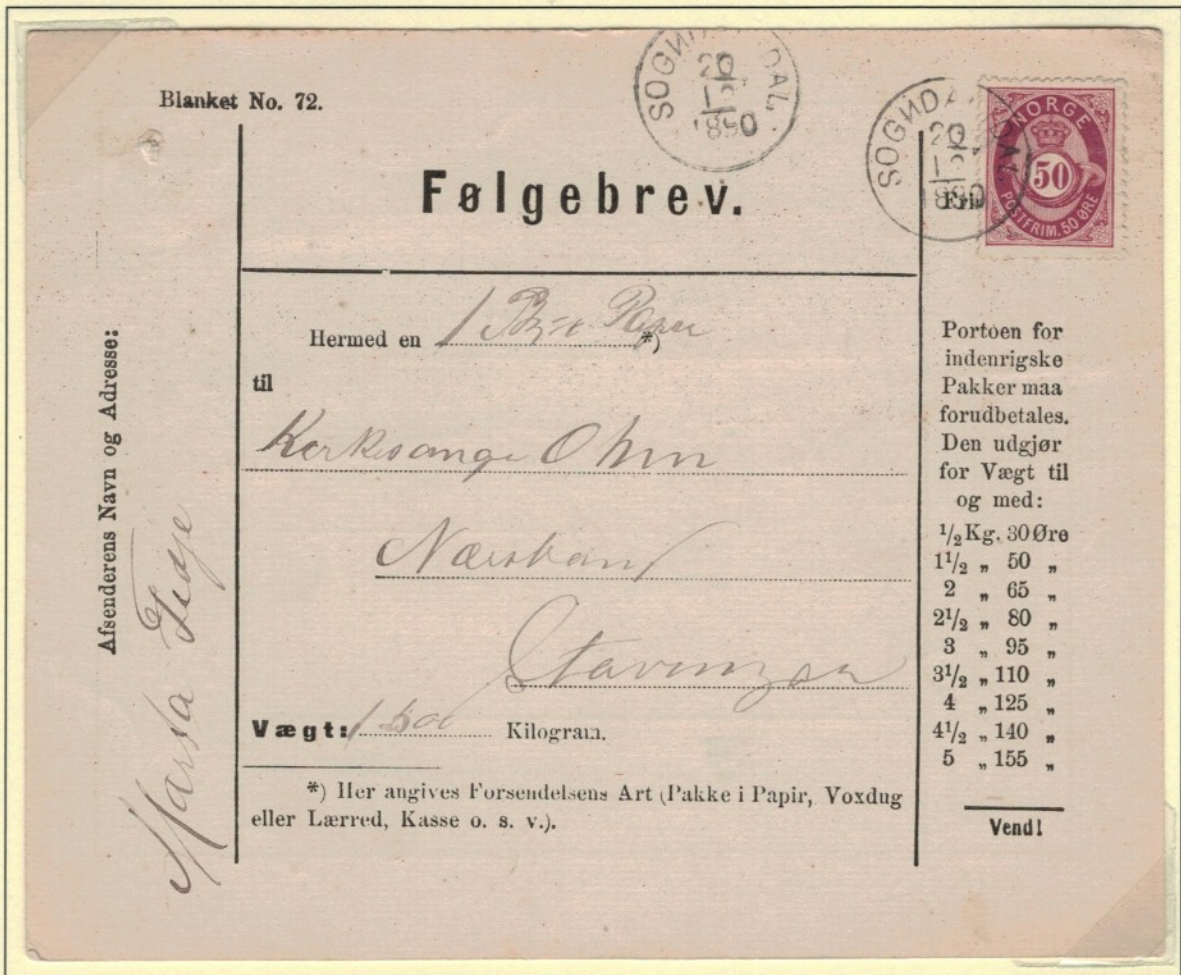 Blanket No. 72.
SOGNDAL DAL
20
12
1890
SOGNDA DAL
20
12
1890
NORGE
50
POSTFRIM. 50 ØRE
Følgebrev.
Afsenderens Navn og Adresse:
Marta
Hermed en 1 *)
til
Kerkesange
Nærstrand
Stavanger
Vægt: 1 500 Kilogram.
*) Her angives Forsendelsens Art (Pakke i Papir, Voxdug
eller Lærred, Kasse o. s. v.).
Portoen for
indenrigske
Pakker maa
forudbetales.
Den udgjør
for Vægt til
og med:
1/2 Kg. 30 Øre
1 1/2 „ 50 „
2 „ 65 „
2 1/2 „ 80 „
3 „ 95 „
3 1/2 „ 110 „
4 „ 125 „
4 1/2 „ 140 „
5 „ 155 „
Vend!